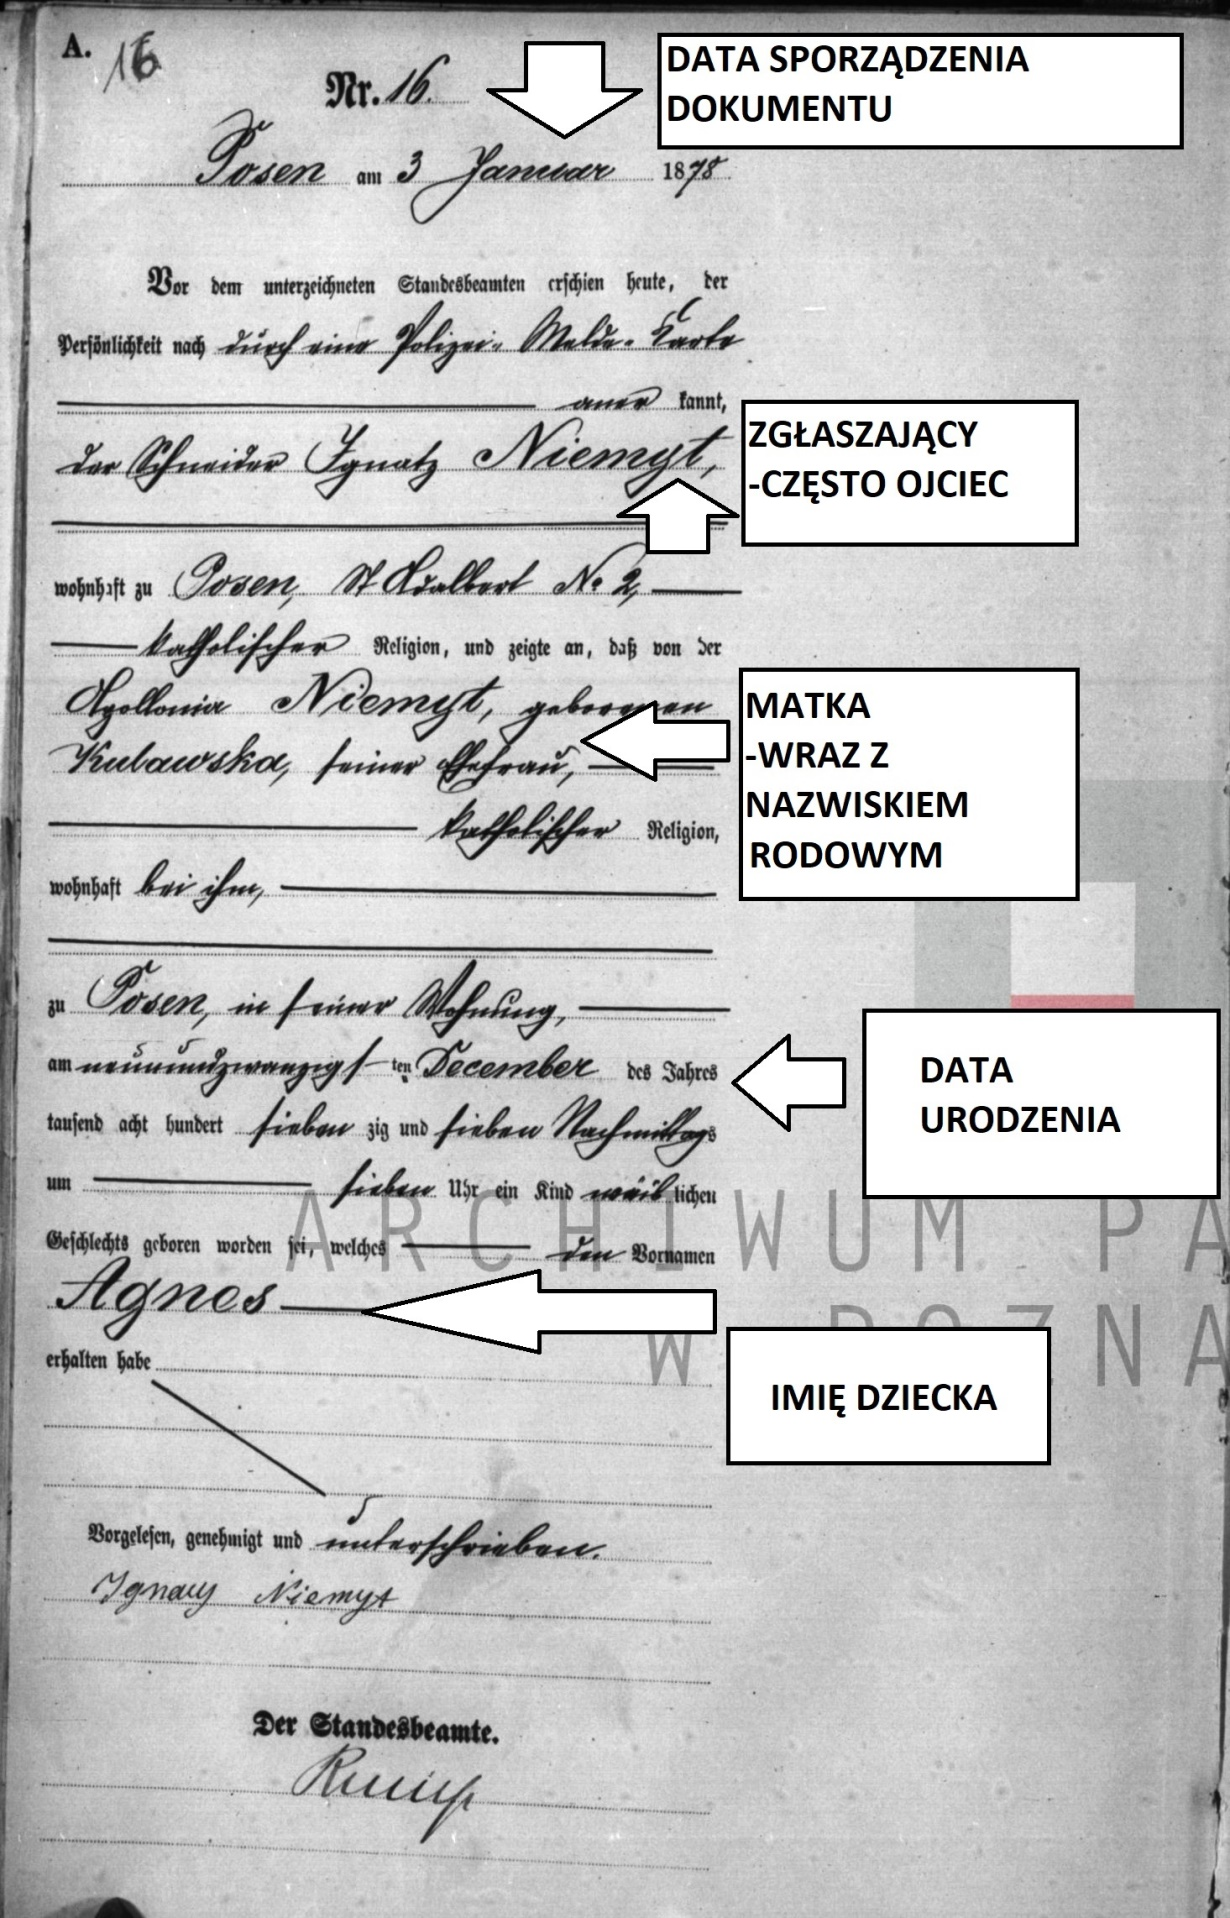 A.
16
Nr. 16.
DATA SPORZĄDZENIA
DOKUMENTU
Posen am 3 Januar 1878.
Vor dem unterzeichneten Standesbeamten erschien heute, der
Persönlichkeit nach durch eine Polizei-Melde-Karte
aner kannt,
der Schneider Ignatz Niemyt,
ZGŁASZAJĄCY
-CZĘSTO OJCIEC
wohnhaft zu Posen, St Adalbert No 2,
katholischer Religion, und zeigte an, daß von der
Apollonia Niemyt, geborenen
Kubawska, seiner Ehefrau,
MATKA
-WRAZ Z
NAZWISKIEM
RODOWYM
katholischer Religion,
wohnhaft bei ihm,
zu Posen, in seiner Wohnung,
am neunundzwanzigsten December des Jahres
DATA
URODZENIA
tausend acht hundert sieben zig und sieben Nachmittags
um sieben Uhr ein Kind weiblichen
Geschlechts geboren worden sei, welches den Vornamen
Agnes
erhalten habe
IMIĘ DZIECKA
ARCHIWUM PA
W POZNA
Vorgelesen, genehmigt und unterschrieben.
Ignacy Niemyt
Der Standesbeamte.